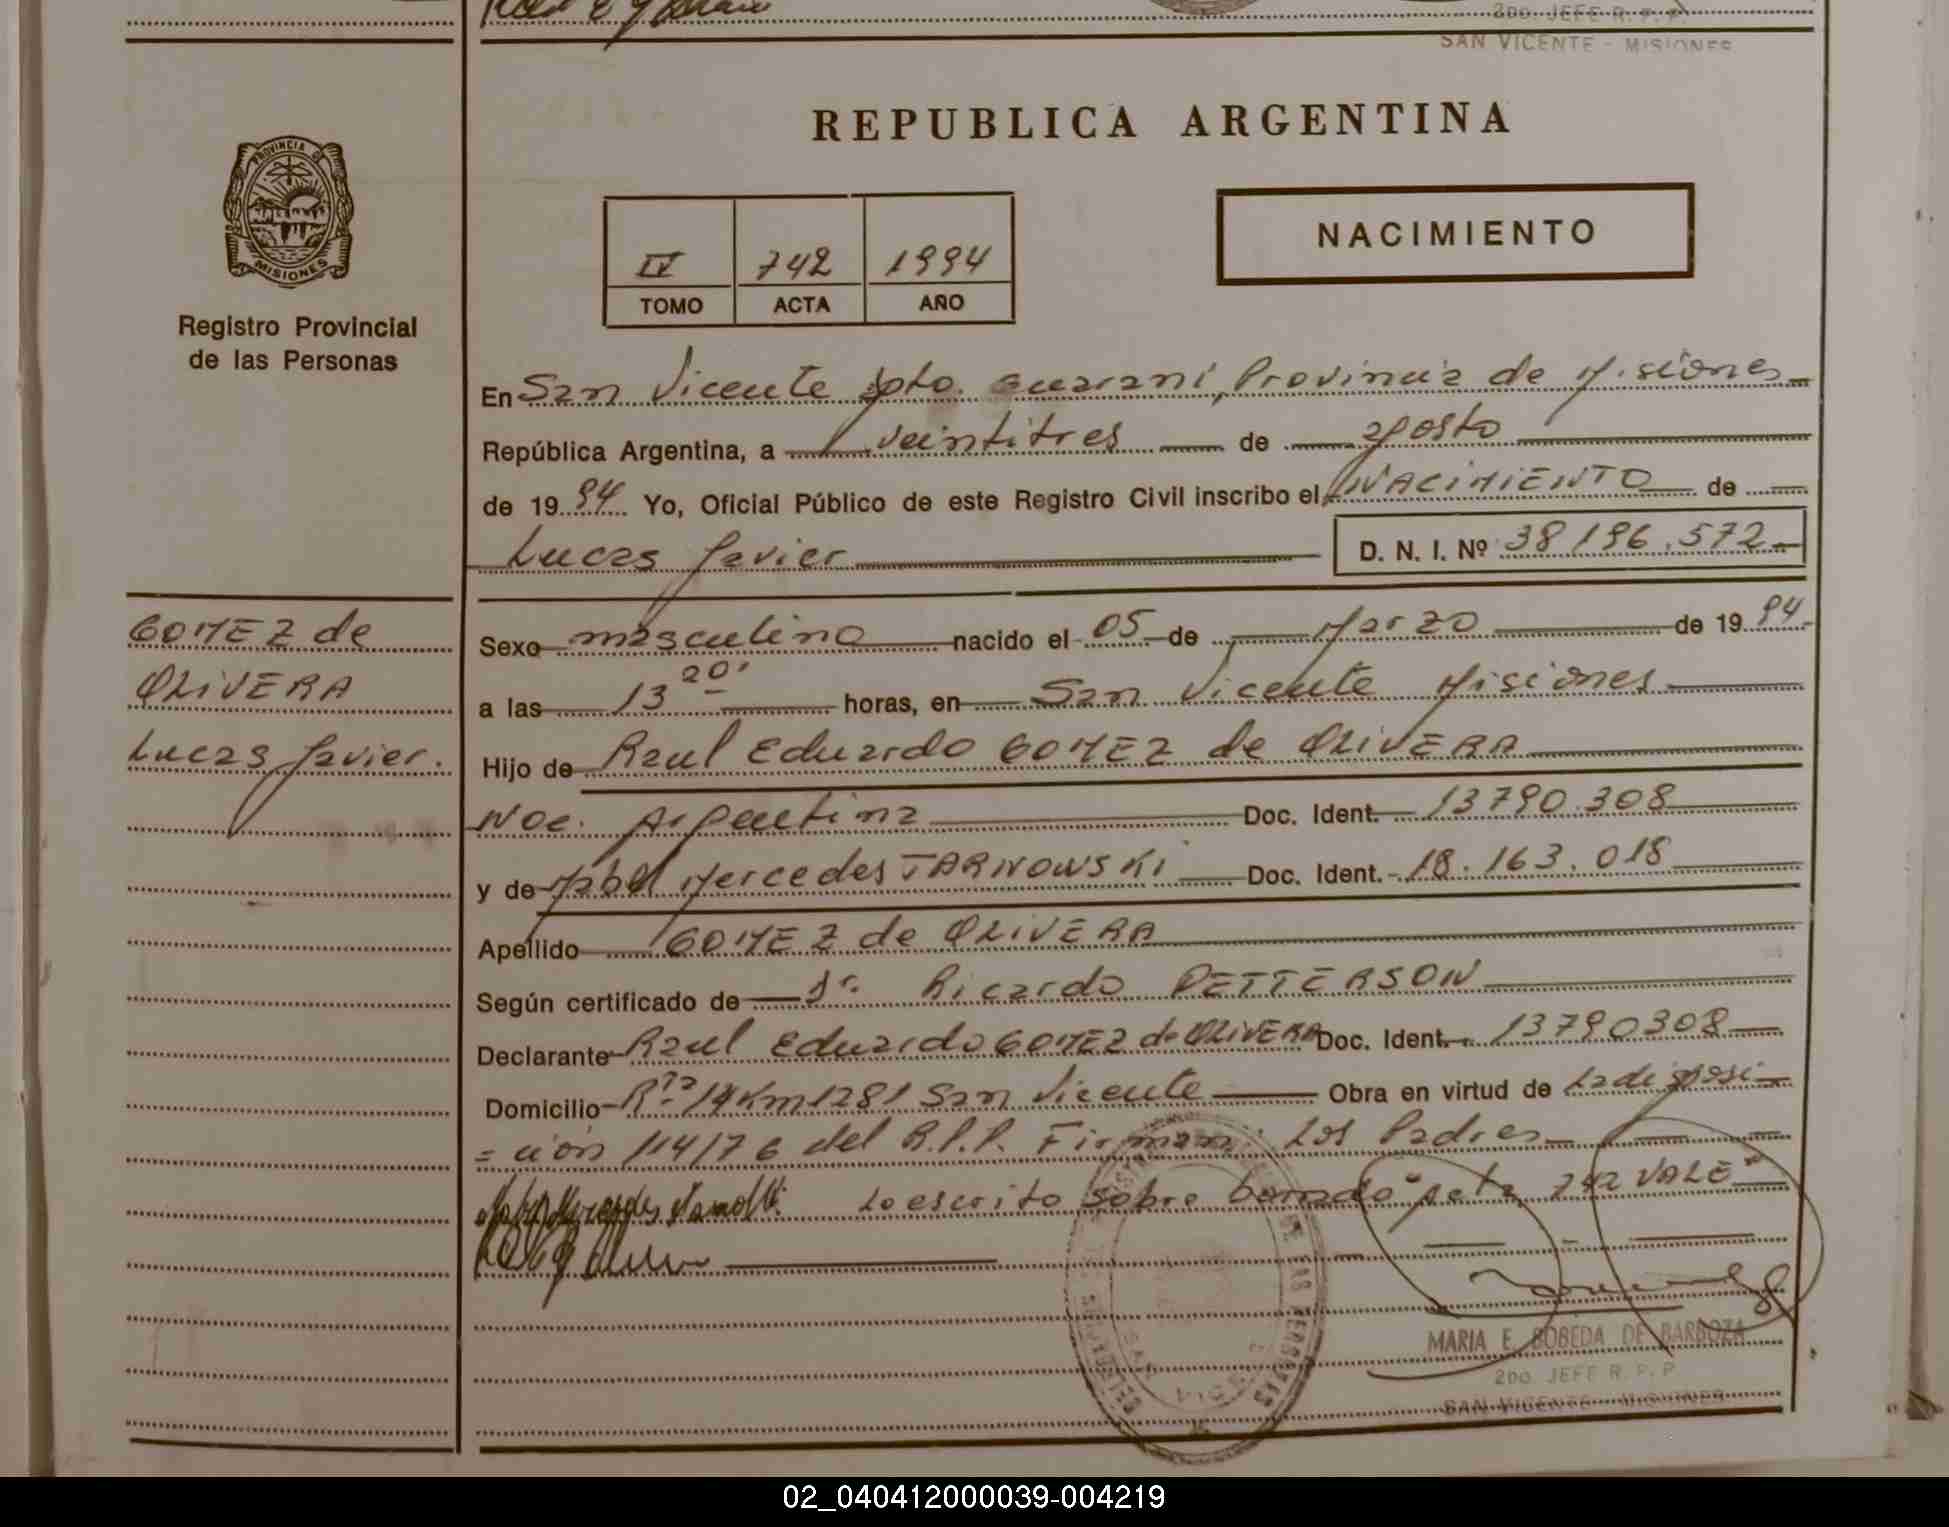 2do. JEFE R. P. P.
SAN VICENTE - MISIONES
REPUBLICA ARGENTINA
PROVINCIA DE
MISIONES
NACIMIENTO
IV 742 1994
TOMO ACTA AÑO
Registro Provincial
de las Personas
En San Vicente Dpto. Guarani, Provincia de Misiones
República Argentina, a veintitres de agosto
de 1994 Yo, Oficial Público de este Registro Civil inscribo el NACIMIENTO de
Lucas Javier D. N. I. Nº 38 196.572
GOMEZ de
OLIVERA
Lucas Javier.
Sexo masculino nacido el 05 de Marzo de 1994
a las 13 20' horas, en San Vicente Misiones
Hijo de Raul Eduardo GOMEZ de OLIVERA
Nac. Argentina Doc. Ident. 13790.308
y de Mabel Mercedes TARNOWSKI Doc. Ident. 18.163.018
Apellido GOMEZ de OLIVERA
Según certificado de Dr. Ricardo PETTERSON
Declarante Raul Eduardo GOMEZ de OLIVERA Doc. Ident. 13790308
Domicilio Rta 14 Km 1281 San Vicente Obra en virtud de La disposi
= ción 114/76 del R.P.P. Firman: Los Padres
Lo escrito sobre borrado "acta 742 VALE"
MARIA E. BOBEDA DE BARBOZA
2do. JEFE R. P. P.
SAN VICENTE - MISIONES
02_040412000039-004219